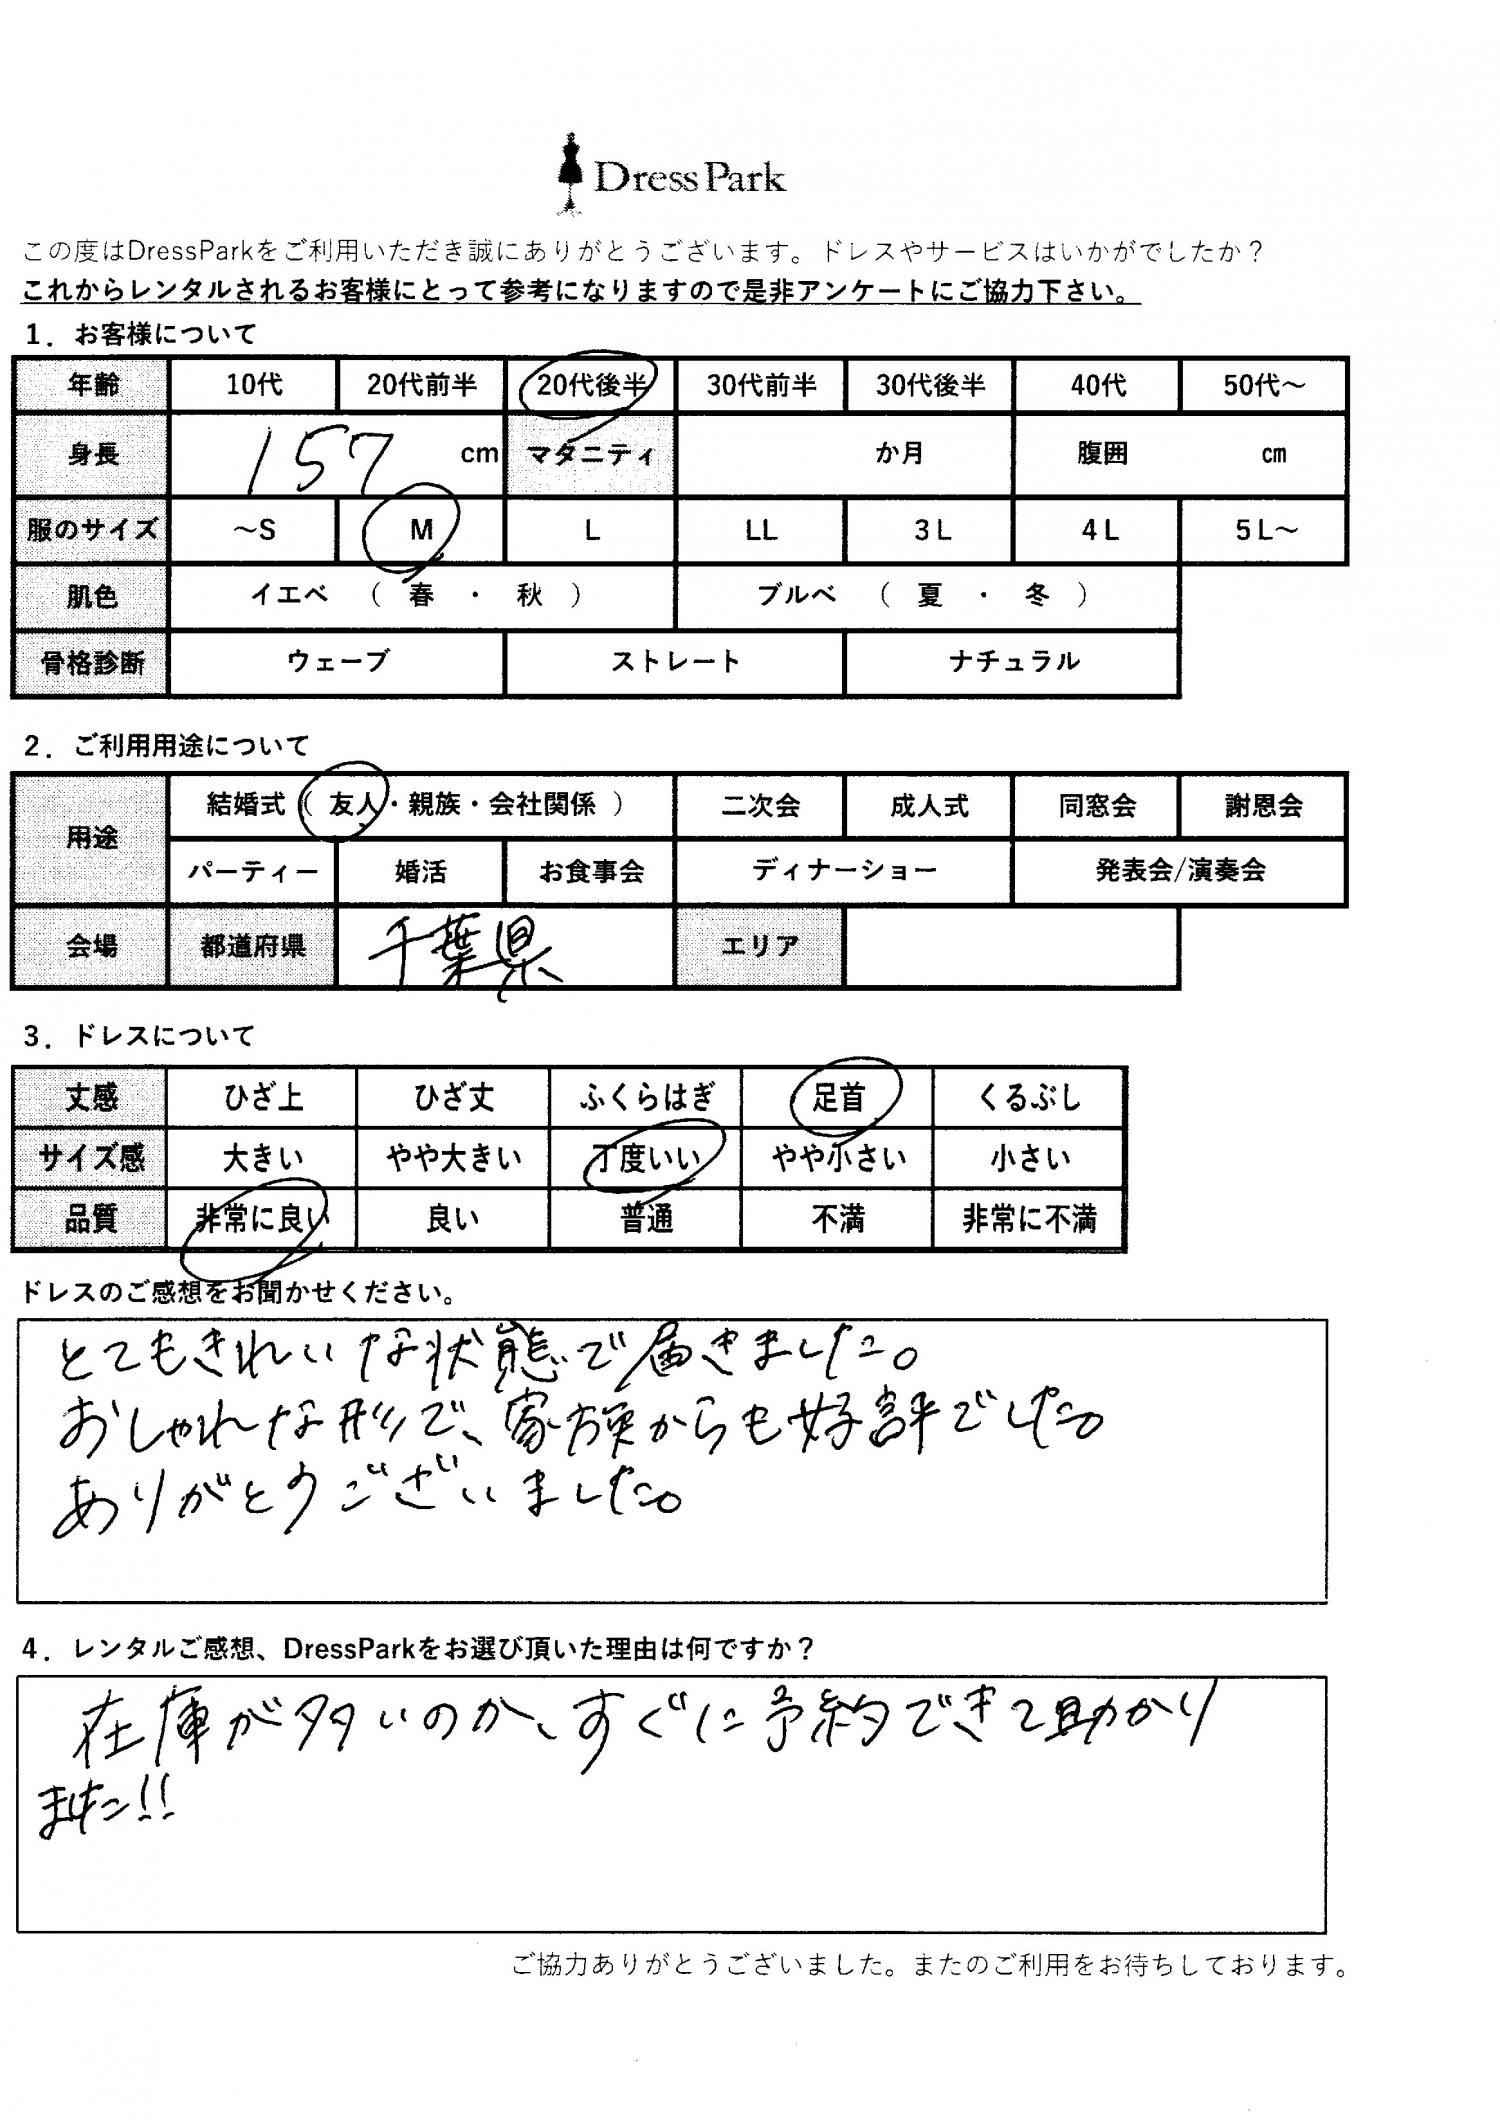 DressPark
この度はDressParkをご利用いただき誠にありがとうございます。ドレスやサービスはいかがでしたか？
これからレンタルされるお客様にとって参考になりますので是非アンケートにご協力下さい。
1．お客様について
年齢 10代 20代前半 20代後半 30代前半 30代後半 40代 50代～
身長 157 cm マタニティ か月 腹囲 cm
服のサイズ ～S M L LL 3L 4L 5L～
肌色 イエベ （ 春 ・ 秋 ） ブルベ （ 夏 ・ 冬 ）
骨格診断 ウェーブ ストレート ナチュラル
2．ご利用用途について
用途 結婚式（ 友人・親族・会社関係 ） 二次会 成人式 同窓会 謝恩会
パーティー 婚活 お食事会 ディナーショー 発表会/演奏会
会場 都道府県 千葉県 エリア
3．ドレスについて
丈感 ひざ上 ひざ丈 ふくらはぎ 足首 くるぶし
サイズ感 大きい やや大きい 丁度いい やや小さい 小さい
品質 非常に良い 良い 普通 不満 非常に不満
ドレスのご感想をお聞かせください。
とてもきれいな状態で届きました。
おしゃれな形で、家族からも好評でした。
ありがとうございました。
4．レンタルご感想、DressParkをお選び頂いた理由は何ですか？
在庫が多いのか、すぐに予約できて助かり
ました!!
ご協力ありがとうございました。またのご利用をお待ちしております。